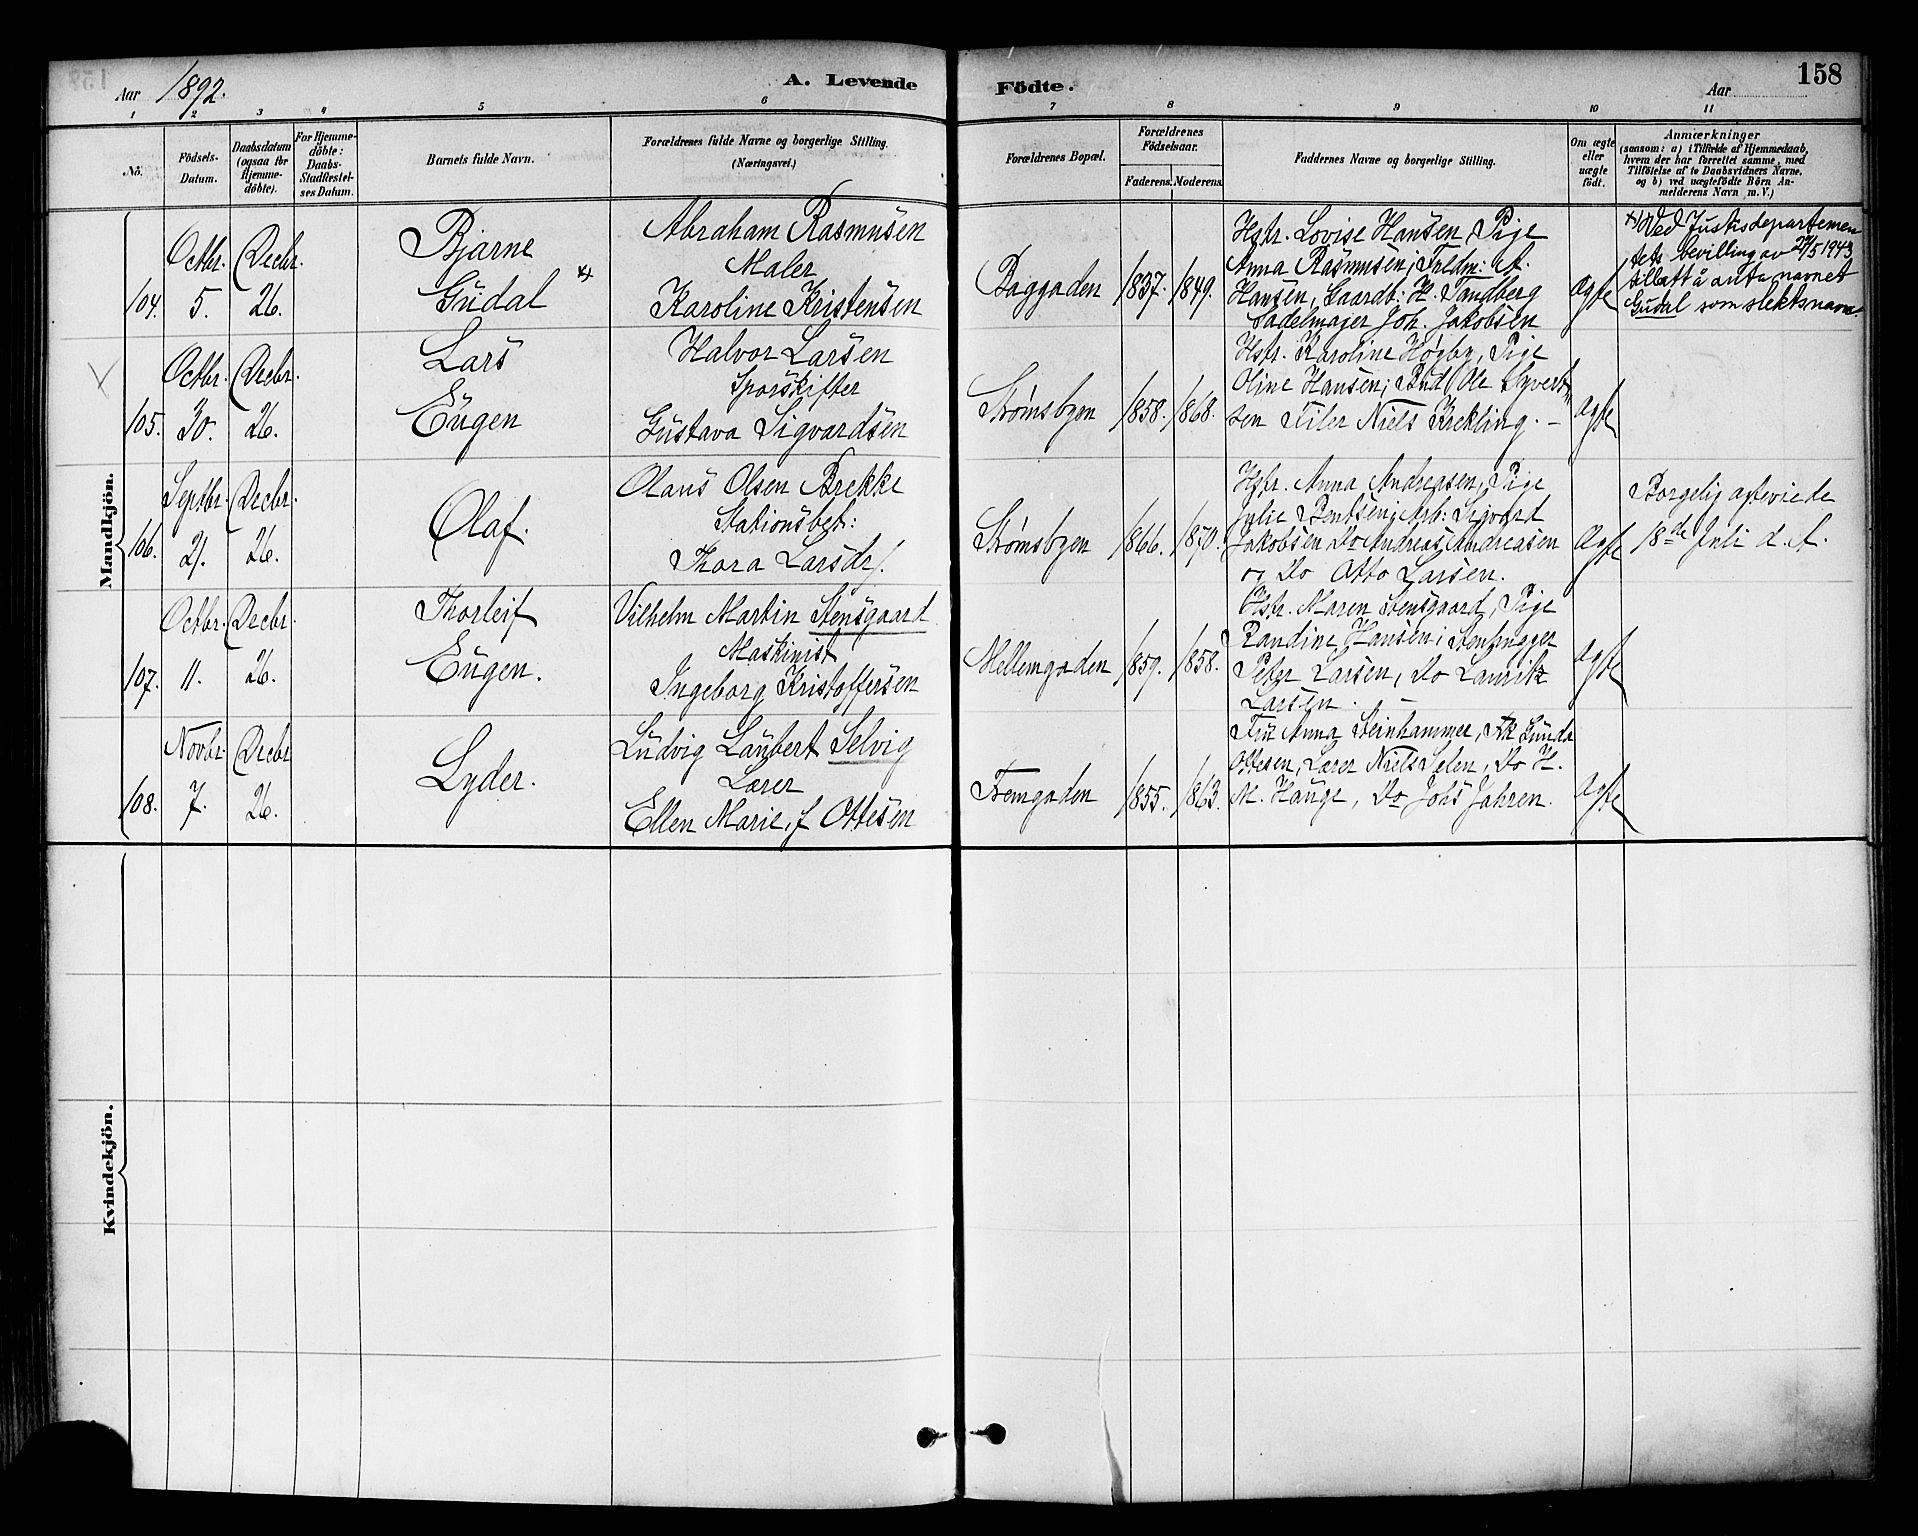 Aar 1892.
A. Levende
Födte.
Aar
158
1 2 3 4 5 6 7 8 9 10 11
No.
Födsels-
Datum.
Daabsdatum
(ogsaa for
Hjemme-
döbte).
For Hjemme-
döbte:
Daabs-
Stadfæstel-
ses Datum.
Barnets fulde Navn.
Forældrenes fulde Navne og borgerlige Stilling.
(Næringsvei.)
Forældrenes Bopæl.
Forældrenes
Födselsaar.
Faderens. Moderens.
Faddernes Navne og borgerlige Stilling.
Om ægte
eller
uægte
födt.
Anmærkninger
(saasom: a) i Tilfælde af Hjemmedaab,
hvem der har forrettet samme, med
Tilföielse af to Daabsvidners Navne,
og b) ved uægtefödte Börn An-
melderens Navn m. V.)
Mandkjön.
104.
Octbr.
5.
Decbr.
26.
Bjarne
Gudal x)
Abraham Rasmusen
Maler
Karoline Kristensen
Baggaden
1837. 1849.
Hstr. Lovise Hansen, Pige
Anna Rasmusen; Fuldm: A.
Hansen, Gaardb: H. Sandberg
Sadelmager Joh. Jakobsen
Ægte
x) Ved Justisdepartemen
tets bevilling av 27/5 1943
tillatt å anta navnet
Gudal som slektsnavn.
X
105.
Octbr.
30.
Decbr.
26.
Lars
Eugen
Halvor Larsen
Sporskifter
Gustava Sigvardsen
Strømsbyen
1858. 1868.
Hstr. Karoline Høgby, Pige
Oline Hansen; Bud Ole Syvert-
sen Filer Niels Krekling. –
Ægte
106.
Septbr.
21.
Decbr.
26.
Olaf.
Olaus Olsen Brekke
Stationsbet:
Thora Larsdr.
Strømsbyen
1866. 1870.
Hstr. Anna Andreasen, Pige
Julie Bentsen; Arb: Sigvard
Jakobsen Do Andreas Andreasen
og Do Otto Larsen.
Ægte
Borgelig ægteviede
18de Juli d. A.
107.
Octbr.
11.
Decbr.
26.
Thorleif
Eugen.
Vilhelm Martin Stensgaard
Maskinist
Ingeborg Kristoffersen
Mellemgaden
1859. 1858.
Hstr. Maren Stensgaard, Pige
Randine Hansen; Stenhugger
Peter Larsen, Do Lauritz
Larsen. –
Ægte
108.
Novbr.
7.
Decbr.
26.
Lyder.
Ludvig Laubert Selvig
Lærer
Ellen Marie, f Ottesen
Fremgaden
1855. 1863.
Fru Anna Steinhammer, Frk Gunda
Ottesen, Lærer Niels Selen, Do H.
M. Hauge, Do Johs Jahren.
Ægte
Kvindekjön.